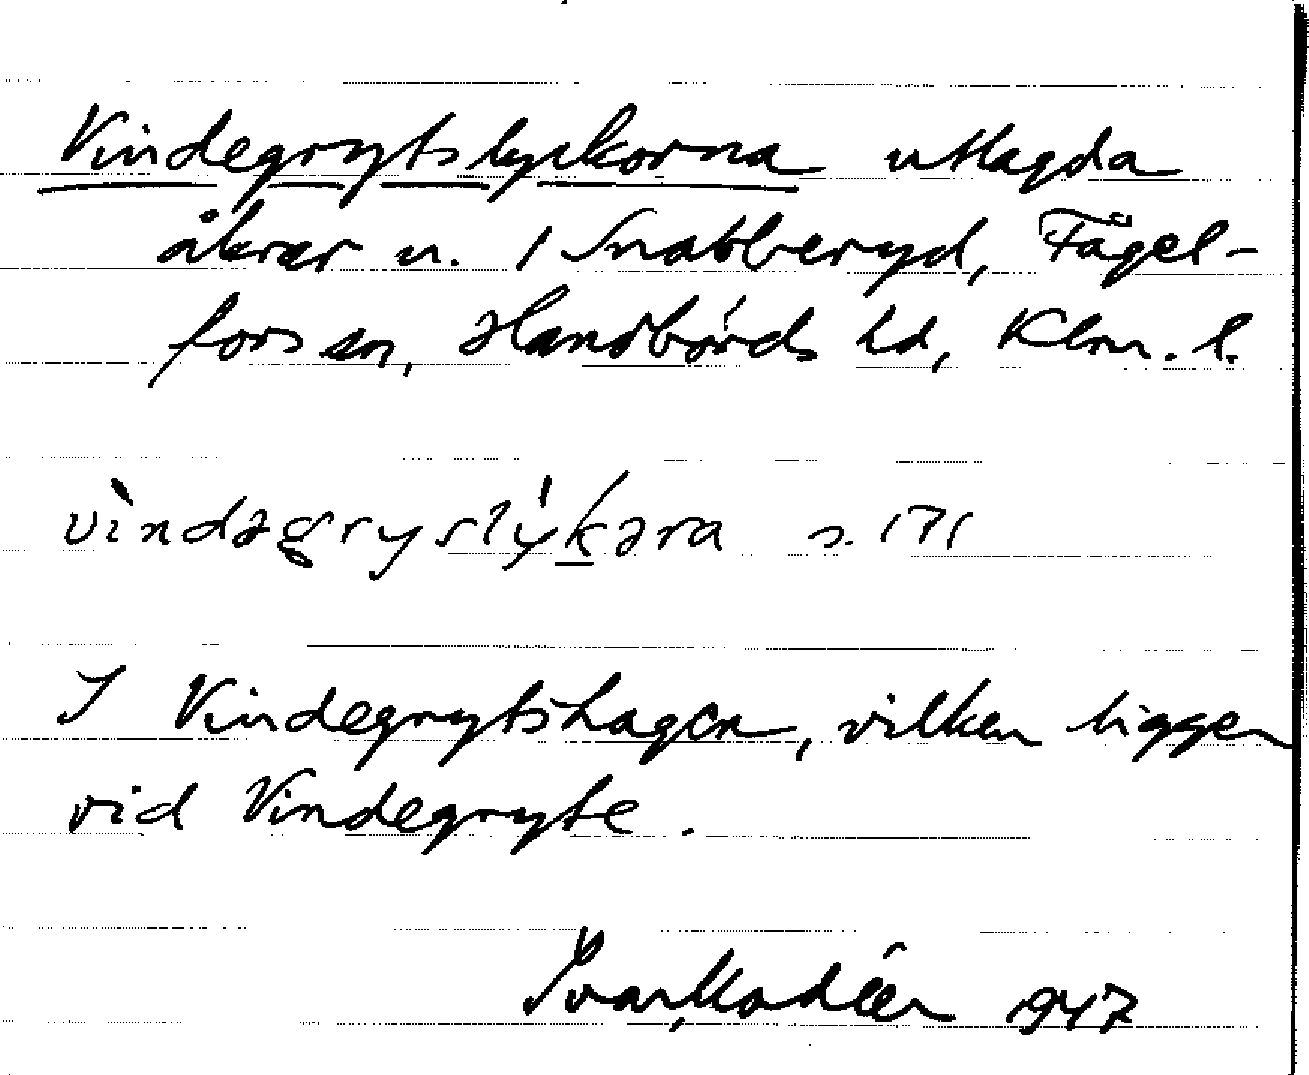 Vindegrytslyckorna utlagda
åkrar u. 1 Snabberyd, Fågel-
fors sn, Handbörds hd, Klm. l.
vìndəgryslýkəra s. 171
I Vindegrytshagen, vilken ligger
vid Vindegryte.
Ivar Modéer 1947